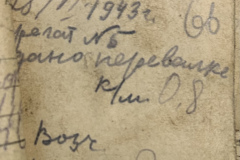 28/VI 1943г. 66
регат №5
дано перевалке
к/м. 0,8
Возч